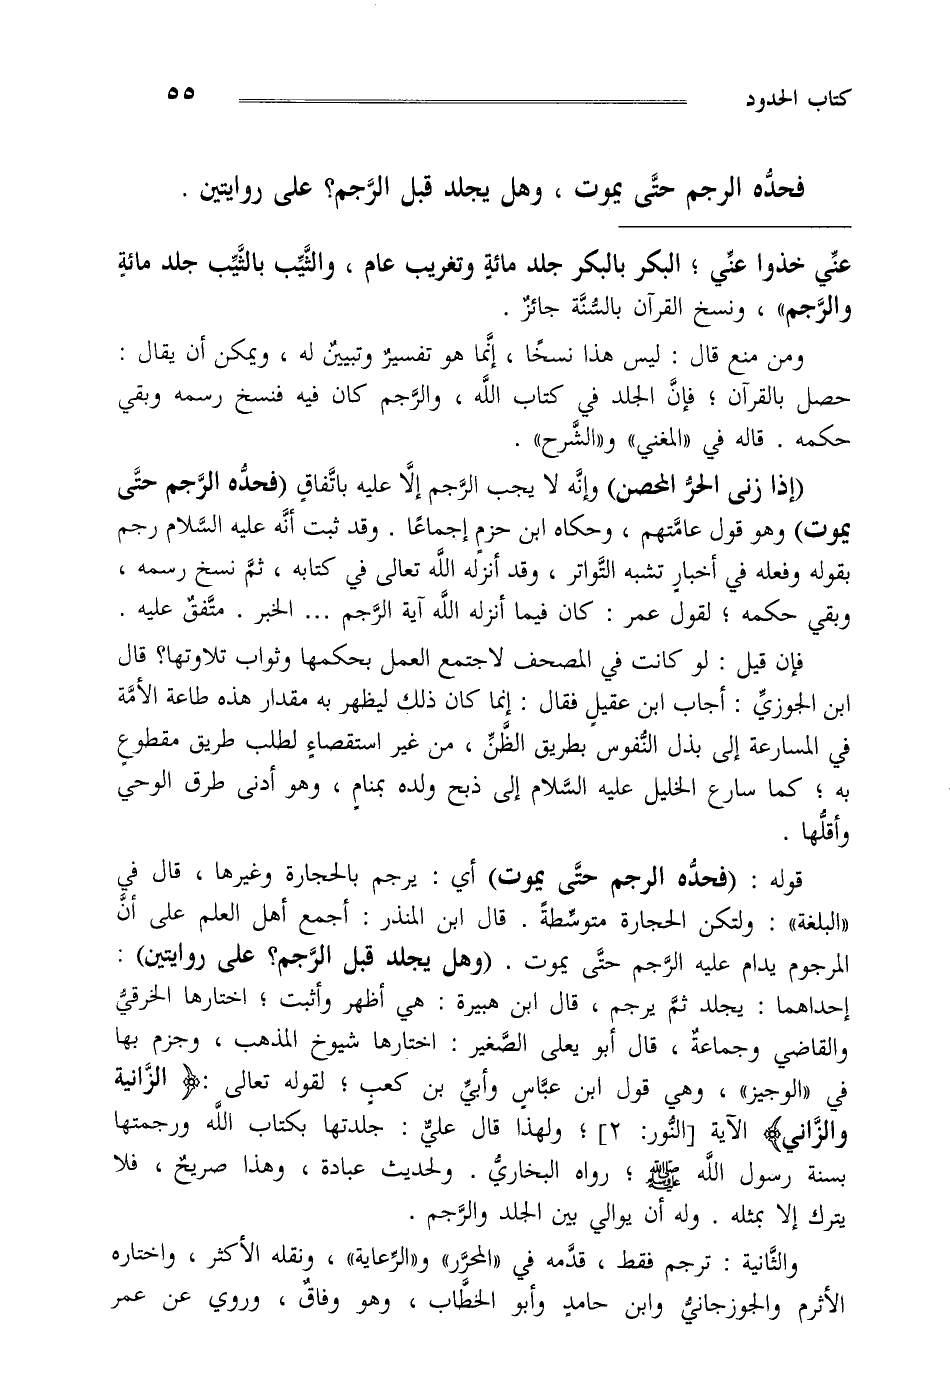 كتاب الحدود ٥٥
فحدُّه الرجم حتَّى يموت ، وهل يجلد قبل الرَّجم؟ على روايتين .
عنِّي خذوا عنِّي ؛ البكر بالبكر جلد مائةٍ وتغريب عام ، والثَّيِّب بالثَّيِّب جلد مائةٍ
والرَّجم» ، ونسخ القرآن بالسُّنَّة جائزٌ .
ومن منع قال : ليس هذا نسخًا ، إنَّما هو تفسيرٌ وتبيينٌ له ، ويمكن أن يقال :
حصل بالقرآن ؛ فإنَّ الجلد في كتاب اللَّه ، والرَّجم كان فيه فنسخ رسمه وبقي
حكمه . قاله في «المغني» و«الشَّرح» .
(إذا زنى الحرُّ المحصن) وإنَّه لا يجب الرَّجم إلَّا عليه باتَّفاقٍ (فحدُّه الرَّجم حتَّى
يموت) وهو قول عامَّتهم ، وحكاه ابن حزمٍ إجماعًا . وقد ثبت أنَّه عليه السَّلام رجم
بقوله وفعله في أخبارٍ تشبه التَّواتر ، وقد أنزله اللَّه تعالى في كتابه ، ثمَّ نسخ رسمه ،
وبقي حكمه ؛ لقول عمر : كان فيما أنزله اللَّه آية الرَّجم ... الخبر . متَّفقٌ عليه .
فإن قيل : لو كانت في المصحف لاجتمع العمل بحكمها وثواب تلاوتها؟ قال
ابن الجوزيِّ : أجاب ابن عقيلٍ فقال : إنما كان ذلك ليظهر به مقدار هذه طاعة الأمَّة
في المسارعة إلى بذل النُّفوس بطريق الظَّنِّ ، من غير استقصاءٍ لطلب طريق مقطوعٍ
به ؛ كما سارع الخليل عليه السَّلام إلى ذبح ولده بمنامٍ ، وهو أدنى طرق الوحي
وأقلُّها .
قوله : (فحدُّه الرجم حتَّى يموت) أي : يرجم بالحجارة وغيرها ، قال في
«البلغة» : ولتكن الحجارة متوسِّطةً . قال ابن المنذر : أجمع أهل العلم على أنَّ
المرجوم يدام عليه الرَّجم حتَّى يموت . (وهل يجلد قبل الرَّجم؟ على روايتين) :
إحداهما : يجلد ثمَّ يرجم ، قال ابن هبيرة : هي أظهر وأثبت ؛ اختارها الخرقيُّ
والقاضي وجماعةٌ ، قال أبو يعلى الصَّغير : اختارها شيوخ المذهب ، وجزم بها
في «الوجيز» ، وهي قول ابن عبَّاسٍ وأبيِّ بن كعبٍ ؛ لقوله تعالى :﴿ الزَّانية
والزَّاني﴾ الآية [النُّور: ٢] ؛ ولهذا قال عليٌّ : جلدتها بكتاب اللَّه ورجمتها
بسنة رسول اللَّه ﷺ ؛ رواه البخاريُّ . ولحديث عبادة ، وهذا صريحٌ ، فلا
يترك إلا بمثله . وله أن يوالي بين الجلد والرَّجم .
والثَّانية : ترجم فقط ، قدَّمه في «المحرَّر» و«الرِّعاية» ، ونقله الأكثر ، واختاره
الأثرم والجوزجانيُّ وابن حامدٍ وأبو الخطَّاب ، وهو وفاقٌ ، وروي عن عمر